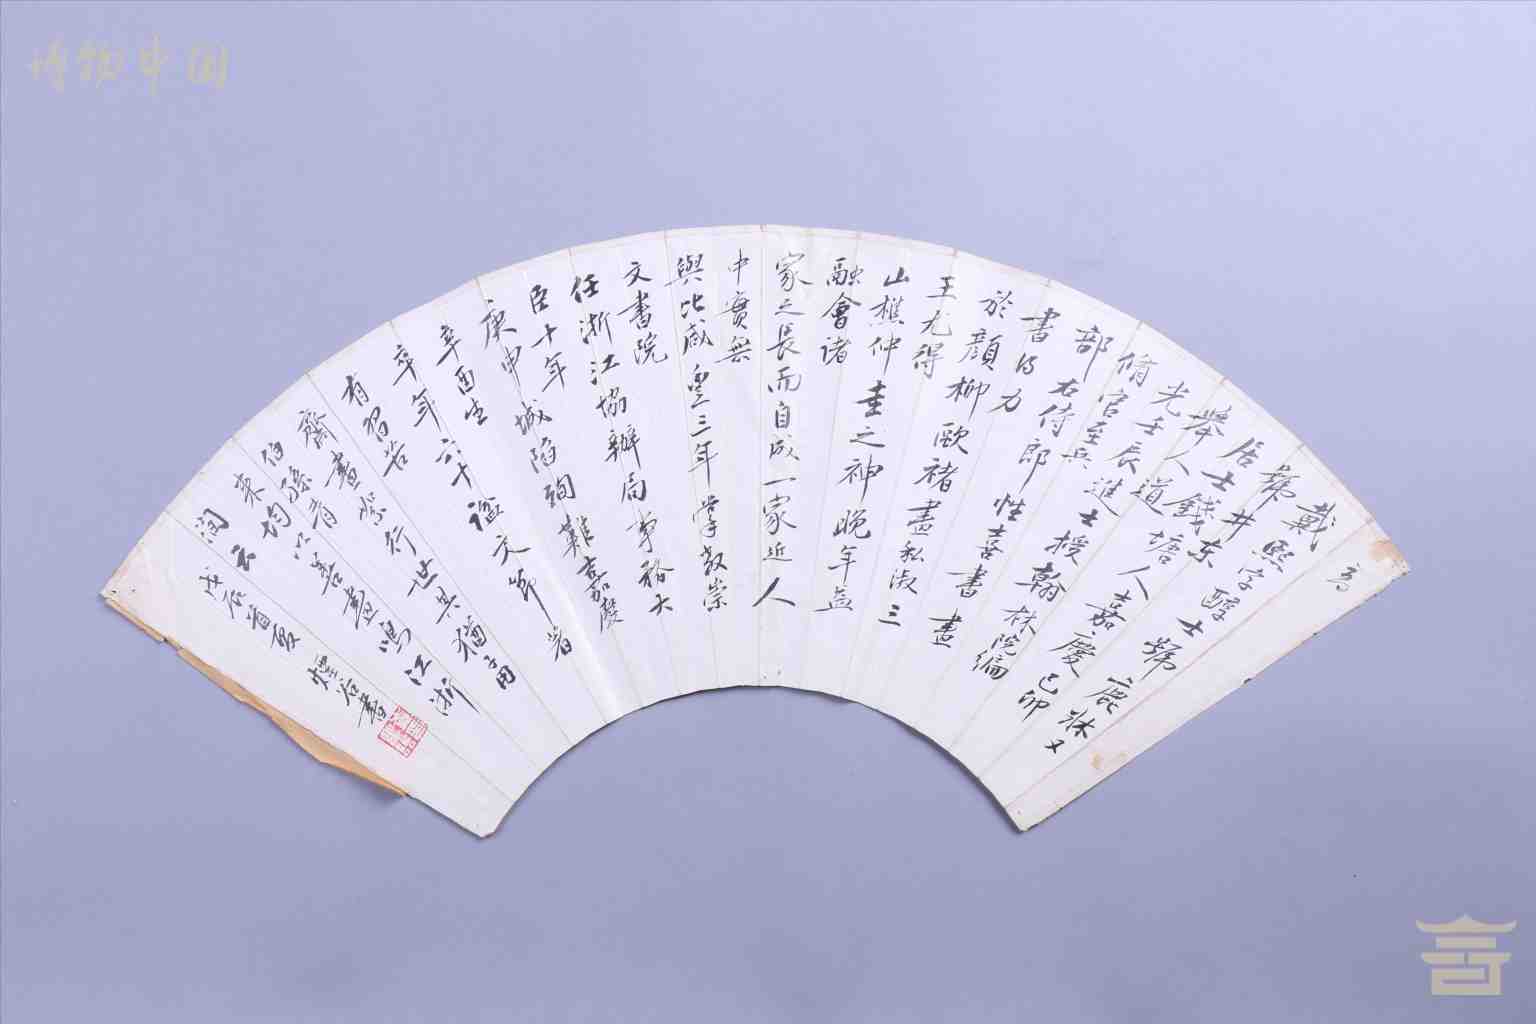 為
戴熙字醇士號鹿牀又
號井東
居士錢塘人嘉慶己卯
舉人道
光壬辰進士授翰林院編
脩官至兵
部右侍郎性喜書畫
書得力
於顏柳歐褚畫私淑三
王尤得
山樵仲圭之神晚年益
融會諸
家之長而自成一家近人
中實無
與比咸豐三年掌教崇
文書院
任浙江協辦局事務大
臣十年
庚申城陷殉難嘉慶
辛酉生
卒年六十諡文節著
有習苦
齋畫絮行世其猶子用
伯孫青
來均以善畫鳴江浙
潤云
戊辰首夏
煙谷書
博物中国